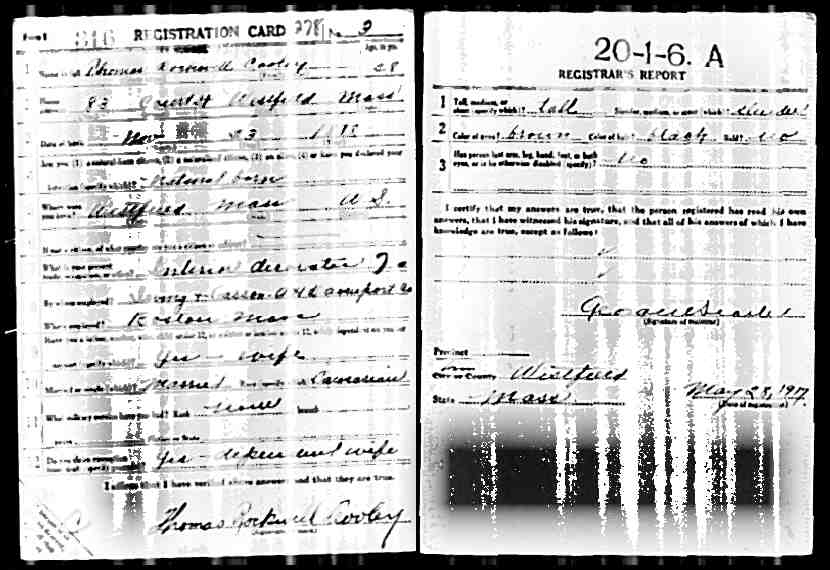 Form 1 816 REGISTRATION CARD 278 No. 2
Age, in yrs.
1 Name in full Thomas Rockwell Cooley 28
2 Home address 83 Court St Westfield Mass
3 Date of birth Nov 23
4 Are you (1) a natural-born citizen, (2) a naturalized citizen, (3) an alien, (4) or have you declared your
intention (specify which)? Natural born
5 Where were you born? Westfield Mass U S.
6 If not a citizen, of what country are you a citizen or subject?
7 What is your present trade, occupation, or office? Interior decorator
8 By whom employed? Irving & Casson A H Davenport Co
Where employed? Boston Mass
9 Have you a father, mother, wife, child under 12, or a sister or brother under 12, solely dependent on you for
support (specify which)? Yes - wife
10 Married or single (which)? Married Race (specify which)? Caucasian
11 What military service have you had? Rank None branch
years Nation or State
12 Do you claim exemption from draft (specify grounds)? Yes - dependent wife
I affirm that I have verified above answers and that they are true.
Thomas Rockwell Cooley
20-1-6. A
REGISTRAR'S REPORT
1 Tall, medium, or short (specify which)? tall Slender, medium, or stout (which)? slender
2 Color of eyes? brown Color of hair? black Bald? No
3 Has person lost arm, leg, hand, foot, or both eyes, or is he otherwise disabled (specify)? No
I certify that my answers are true, that the person registered has read his own
answers, that I have witnessed his signature, and that all of his answers of which I have
knowledge are true, except as follows:
(Signature of registrar)
Precinct
City or County Westfield
State Mass May 28, 1917
(Date of registration)